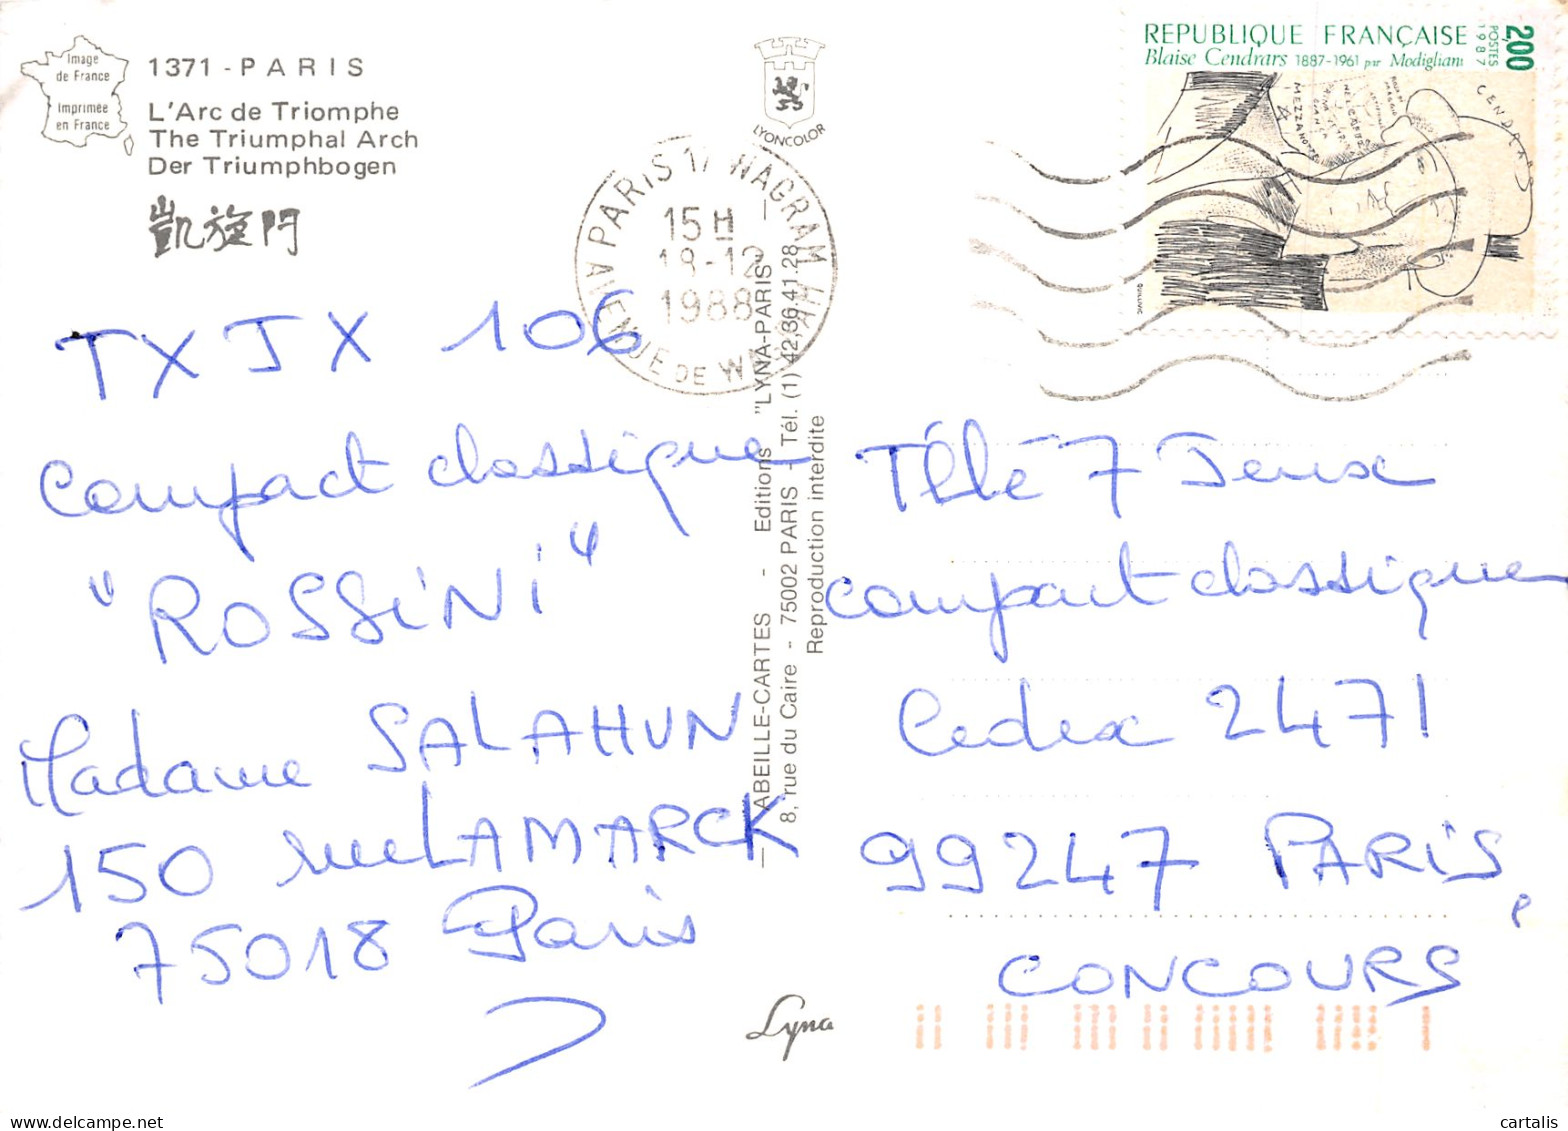 Image
de France
Imprimée
en France
1371 - PARIS
L'Arc de Triomphe
The Triumphal Arch
Der Triumphbogen
凱旋門
LYONCOLOR
PARIS 17 WAGRAM
15H
18-12
1988
AVENUE DE WAGRAM
REPUBLIQUE FRANÇAISE
Blaise Cendrars 1887-1961 par Modigliani
POSTES
1987
2,00
CENDRARS
QUILLIVIC
TX JX 106
Compact classique
"ROSSINI"
Madame SALAHUN
150 rue LAMARCK
75018 Paris
ABEILLE-CARTES - Editions "LYNA-PARIS"
8, rue du Caire - 75002 PARIS - Tél. (1) 42.36.41.28
Reproduction interdite
Lyna
Télé 7 Jeux
compact classique
Cedex 2471
99247 PARIS
CONCOURS
© cartalis